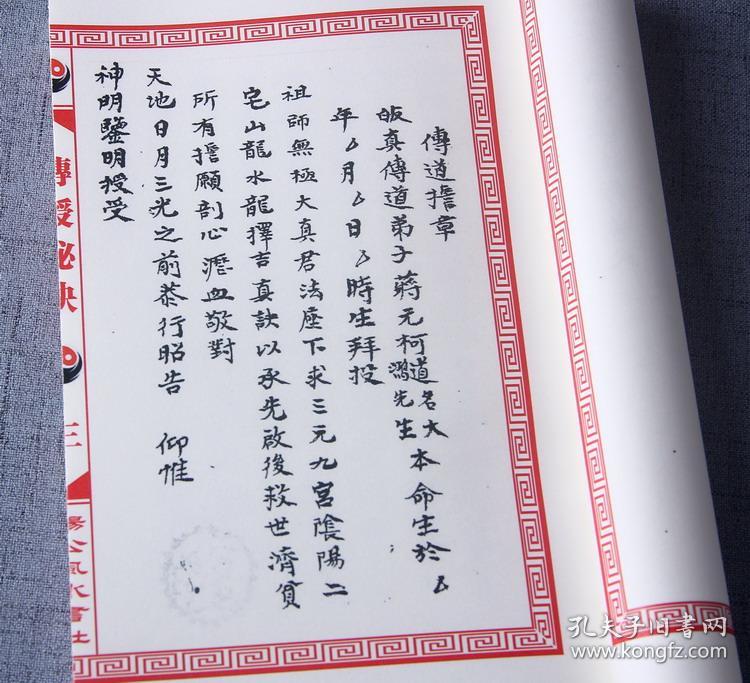 傳道擔章
皈真傳道弟子蔣元柯道名大鴻先生本命生於厶
年厶月厶日厶時生拜投
祖師無極大真君法座下求三元九宮陰陽二
宅山龍水龍擇吉真訣以承先啟後救世濟貧
所有擔願剖心瀝血敬對
天地日月三光之前恭行昭告 仰惟
神明鑒明授受
傳授秘訣
三
楊公風水書社
孔夫子旧书网
www.kongfz.com